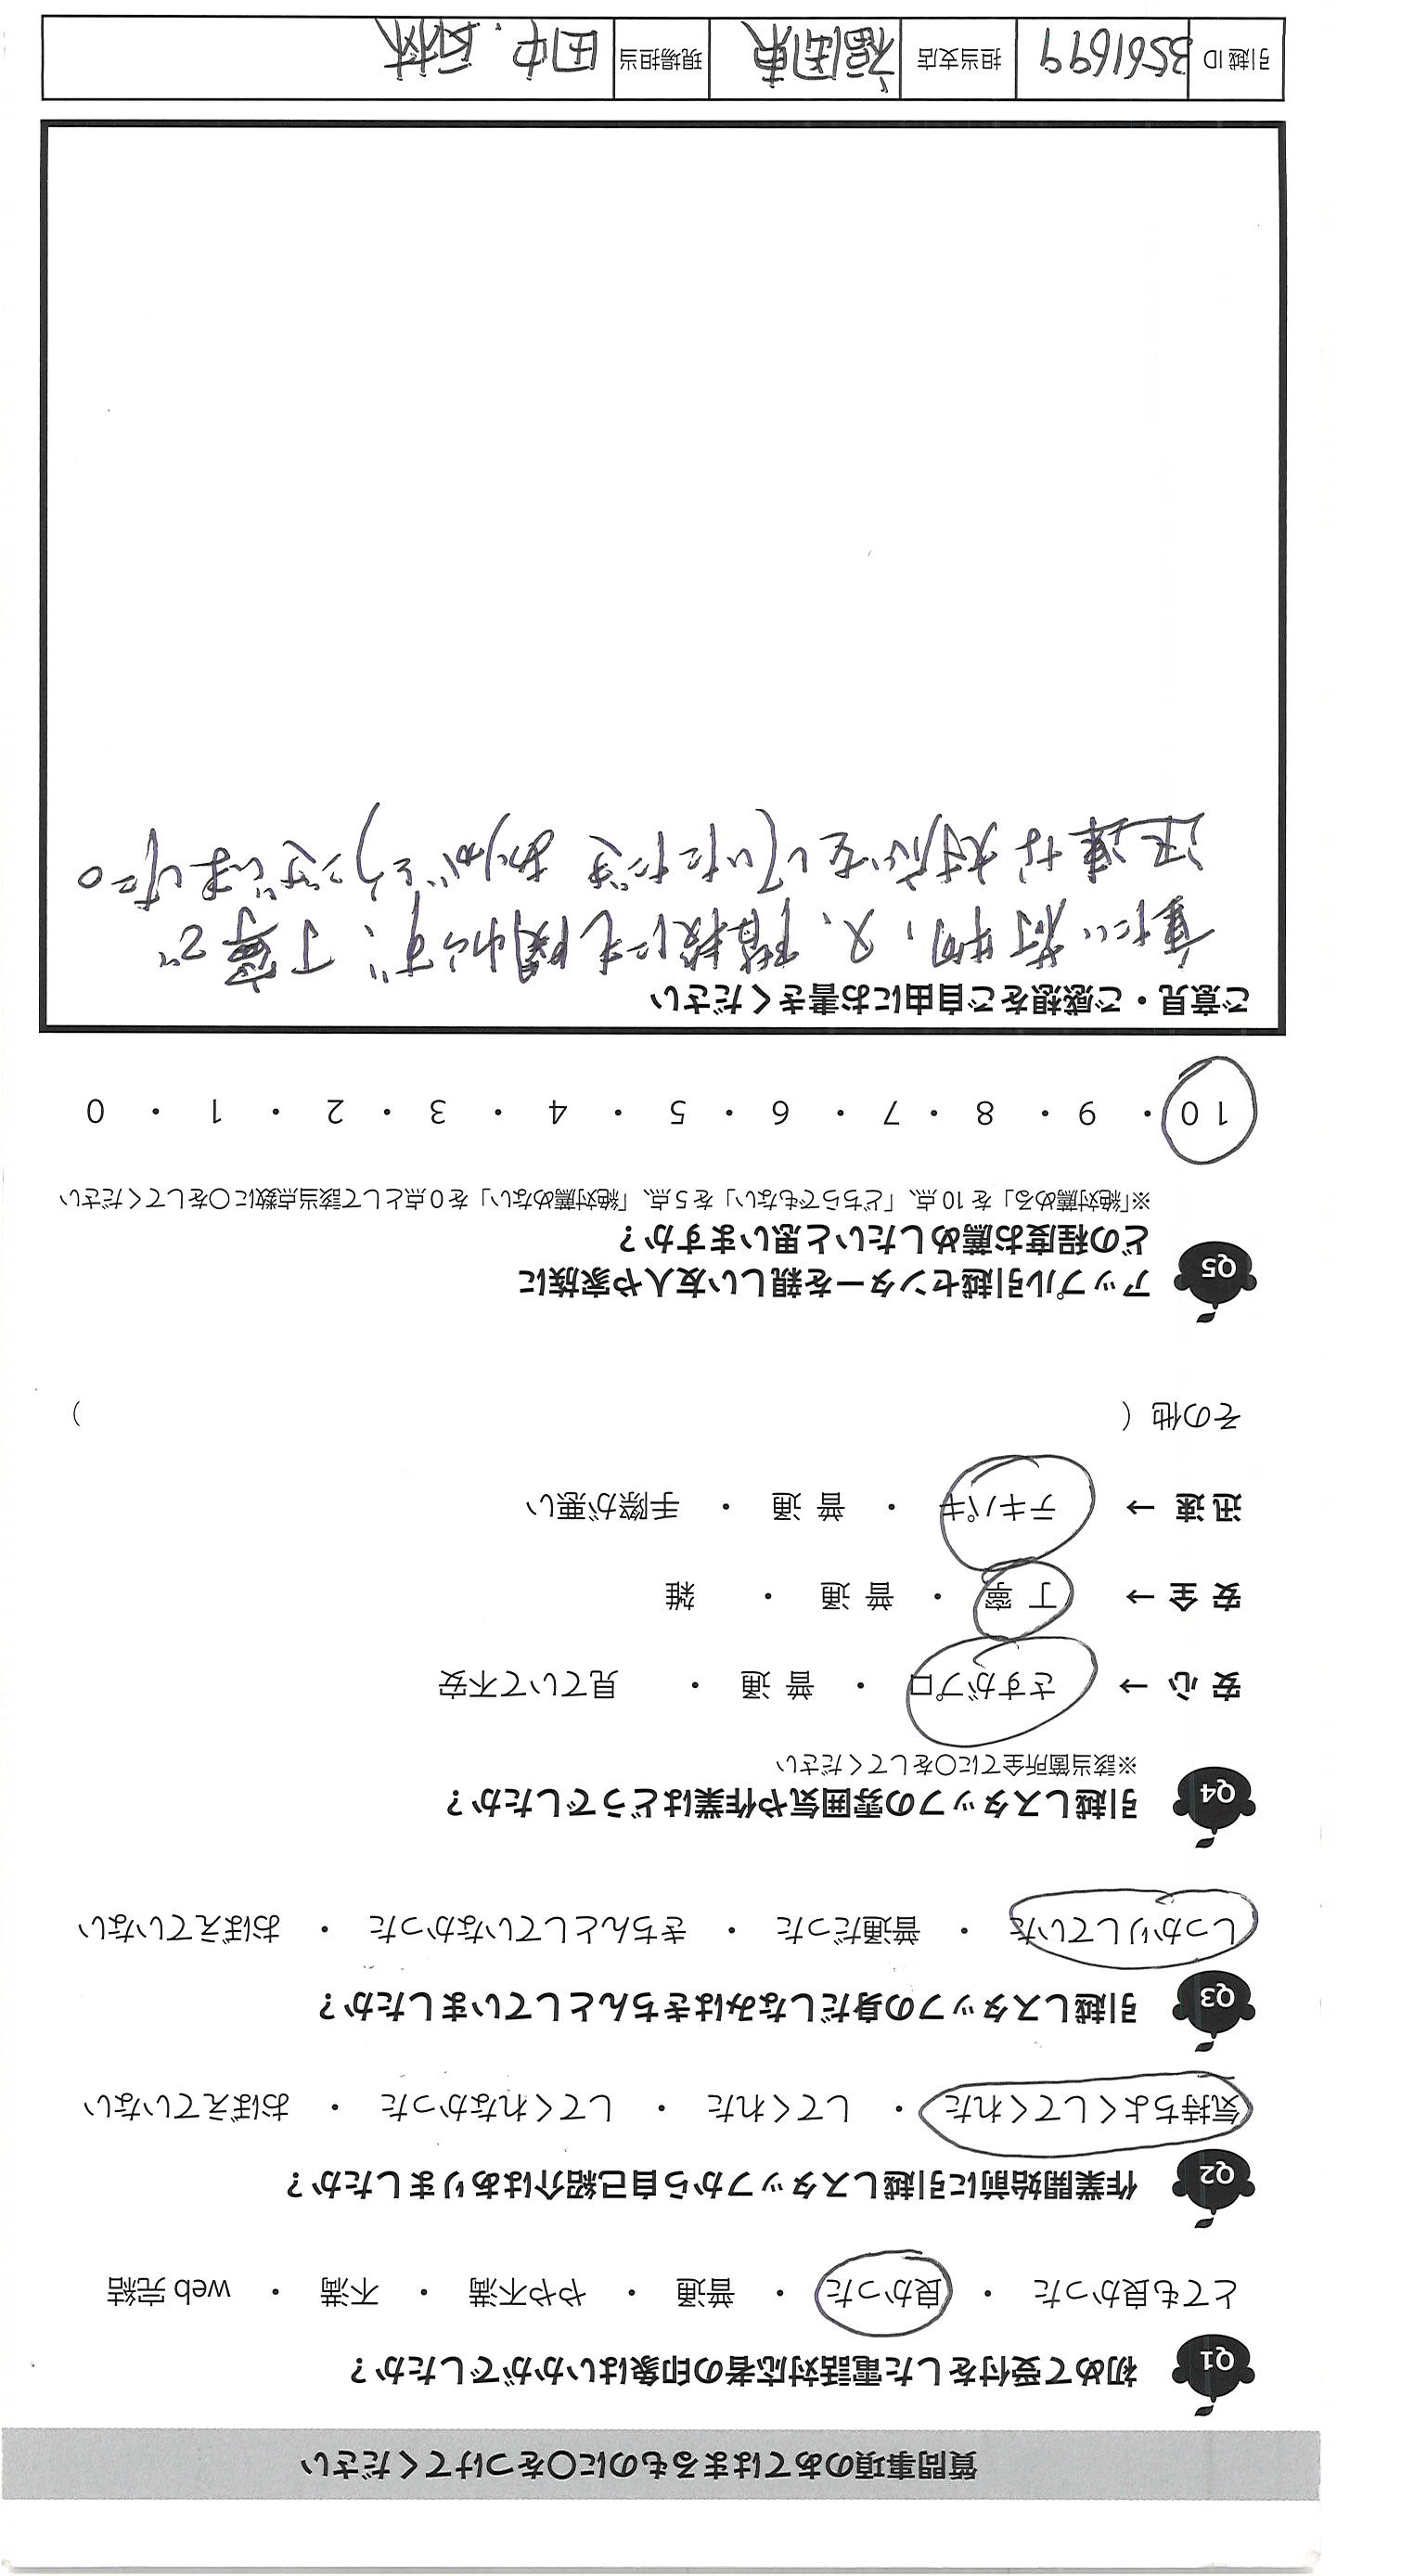 質問事項のあてはまるものに○をつけてください
Q1 初めて受付をした電話対応者の印象はいかがでしたか？
とても良かった ・ 良かった ・ 普通 ・ やや不満 ・ 不満 ・ web 完結
Q2 作業開始前に引越しスタッフから自己紹介はありましたか？
気持ちよくしてくれた ・ してくれた ・ してくれなかった ・ おぼえていない
Q3 引越しスタッフの身だしなみはきちんとしていましたか？
しっかりしていた ・ 普通だった ・ きちんとしていなかった ・ おぼえていない
Q4 引越しスタッフの雰囲気や作業はどうでしたか？
※該当箇所全てに○をしてください
安心 → さすがプロ ・ 普通 ・ 見ていて不安
安全 → 丁寧 ・ 普通 ・ 雑
迅速 → テキパキ ・ 普通 ・ 手際が悪い
その他（ ）
Q5 アップル引越センターを親しい友人や家族に
どの程度お薦めしたいと思いますか？
※「絶対薦める」を 10 点、「どちらでもない」を 5 点、「絶対薦めない」を 0 点として該当点数に○をしてください
10 ・ 9 ・ 8 ・ 7 ・ 6 ・ 5 ・ 4 ・ 3 ・ 2 ・ 1 ・ 0
ご意見・ご感想をご自由にお書きください
重たい荷物、又、階段にも関わらず、丁寧で
迅速な対応をしていただき ありがとうございました。
引越 ID 3561699 担当支店 福岡東 現場担当 田中.